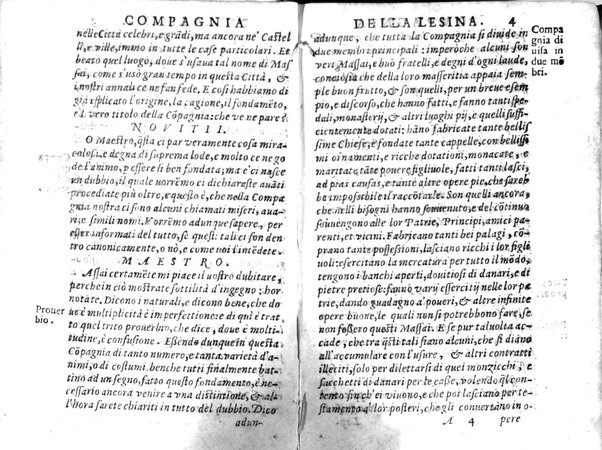 COMPAGNIA
nelle Città celebri, e grādi, ma ancora ne' Castel
li, e ville, immo in tutte le case particolari. Et
beato quel luogo, doue s'usaua tal nome di Mas
sai, come s'usò gran tempo in questa Città, &
i nostri annali ce ne fan fede. E cosi habbiamo di
già esplicato l'origine, la cagione, il fondamēto,
ed vero titolo della Cōpagnia: che ve ne pare?
NOVITII.
O Maestro, q̄sta ci par veramente cosa mira
colosa, e degna di suprema lode, e molto ce ne go
de l'animo, p essere sì ben fondata; ma e' ci nasce
un dubbio, il quale uorēmo ci dichiareste auāti
procediate più oltre, e questo è, che nella Compa
gnia nostra ci sono alcuni chiamati miseri, aua-
ri, e simili nomi. Vorrēmo adunque sapere, per
esser informati del tutto, se questi tali ci son den
tro canonicamente, o nò, e come uoi l'intēdete.
MAESTRO.
Assai certamēte mi piace il uostro dubitare,
perche in ciò mostrate sottilità d'ingegno: hor
notate. Dicono i naturali, e dicono bene, che do
Prouer
bio.
ue è multiplicità è imperfettione: di quì è trat
to quel trito prouerbio, che dice, doue è molti-
tudine, è confusione. Essēdo dunque in questa
Cōpagnia di tanto numero, e tanta varietà d'a-
nimi, o di costumi. benche tutti finalmente bat
tino ad un segno, fatto questo fondamento, è ne-
cessario ancora venire a vna distintione, & al-
l'hora sarete chiariti in tutto del dubbio. Dico
adun-
DELLA LESINA. 4
Compa
gnia di
uisa in
due mē
bri.
adunque, che tutta la Compagnia si diuide in
due membri principali: imperòche alcuni son
veri Massai, e buō fratelli, e degni d'ogni laude,
conciosia che della loro masseritia appaia sem-
ple buon frutto, & son quelli, per un breue esem
pio, e discorso, che hanno fatti, e fanno tanti spe-
dali, monasterij, & altri luoghi pij, e quelli suffi-
cientemente dotati: hāno fabricate tante bellis
sime Chiese, e fondate tante cappelle, con bellissi
mi ornamenti, e ricche dotationi, monacate, e
maritate tāte pouere figliuole, fatti tanti lasci,
ad pias causas, e tante altre opere pie, che sareb
be impossibile il raccōtarle. Son questi ancora,
che nelli bisogni hanno souuenuto, e del cōtinuo
souuengono alle lor Patrie, Principi, amici pa-
renti, et vicini. Fabricano tanti bei palagi, cōm
prano tante possessioni, lasciano ricchi i lor figli
uoli: esercitano la mercatura per tutto il mōdo,
tengono i banchi aperti, douitiosi di danari, e di
pietre pretiose: fanno varij essercitij nelle lor pa
trie, dando guadagno a' poueri, & altre infinite
opere buone, le quali non si potrebbono fare, se
non fossero questi Massai. E se pur talvolta ac-
cade, che tra q̄sti tali siano alcuni, che si diano
all'accumulare con l'usure, & altri contratti
illeciti, solo per dilettarsi di quei mongicchi, e
sacchetti di danari per le casse, volendo q̄l con-
tento fin ch'ei viuono, e poi lasciano per te-
stamento a' lor posteri, che gli conuertano in o-
A 4 pere